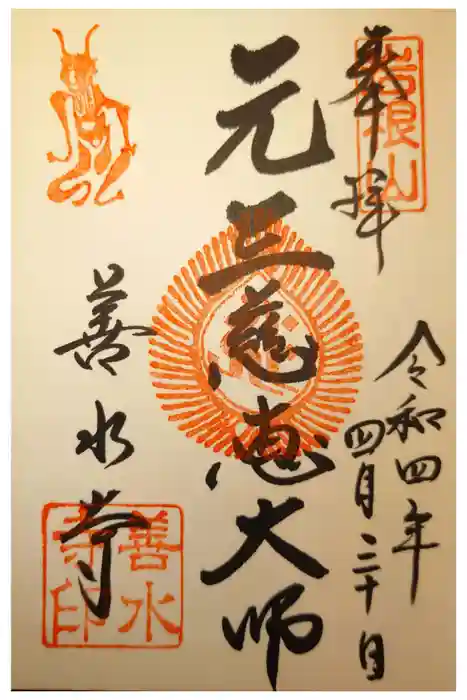 奉拝
岩根山
令和四年
四月三十日
元三慈恵大師
善水寺
善水寺印